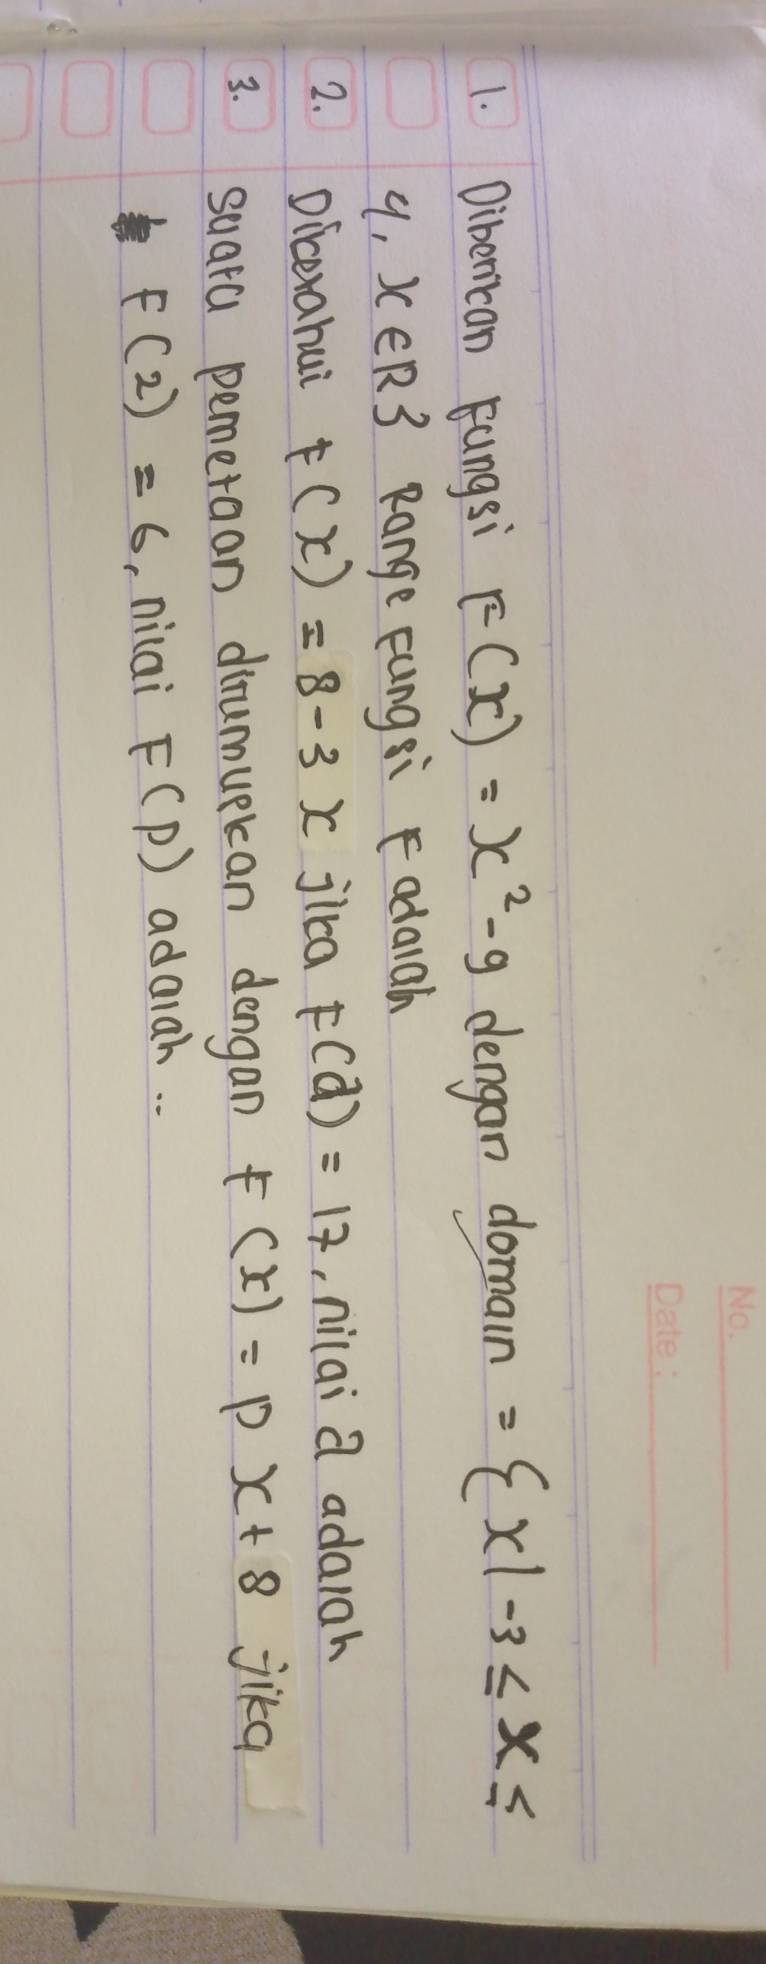 No.
Date :
1. Diberikan Fungsi F(x) = x² - 9 dengan domain = { x | -3 ≤ x ≤
4, x ∈ R } Range Fungsi F adalah
2. Diketahui F(x) = 8 - 3 x jika F(a) = 17, nilai a adalah
3. Suatu pemetaan dirumuskan dengan F (x) = p x + 8 jika
F(2) = 6, nilai F(p) adalah ..